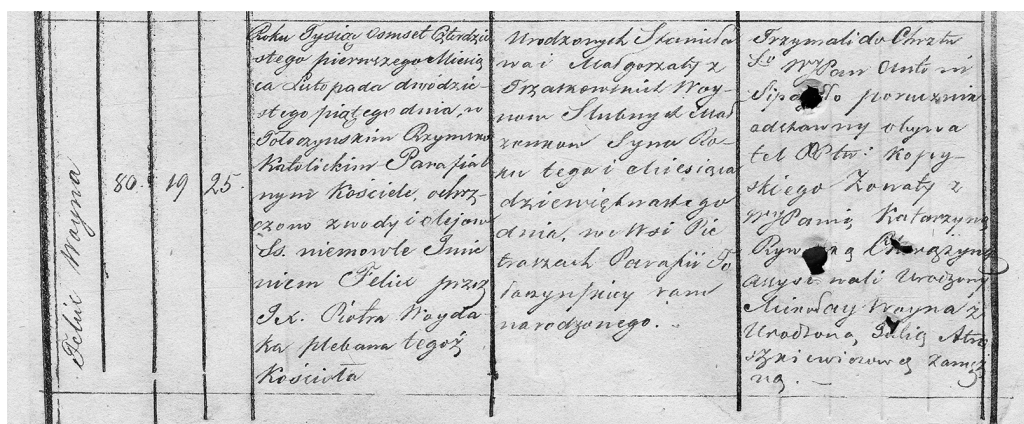 Felic Woyna
80.
19
25.
Roku Tysiąc Osmset Czterdzie
stego pierwszego Miesią
ca Listopada dwódzie
stego piątego dnia, w
Tołoczynskim Rzymsko
Katolickim Parafial
nym Kościele, ochrz
czono z wody i olejow
Ss. niemowle Imie
niem Felic przez
JX. Piotra Woyda
ka plebana tegoż
Kościoła
Urodzonych Stanisła
wa i Małgorzaty z
Trzaskowskich Woy-
now Slubnych Mał
żonkow Syna Ro-
ku tego i Miesiąca
dziewiętnastego
dnia, we Wsi Pie
traszach Parafii To
łoczynskiey tam
narodzonego.
Trzymali do Chrztu
So WyPan Antoni
porucznik
odstawny obywa
tel Kopy-
skiego Zonaty z
WyPanią Katarzyną
assystowali Urodzony
Mikołay Woyna z
Urodzoną Julią
zamęż
ną.